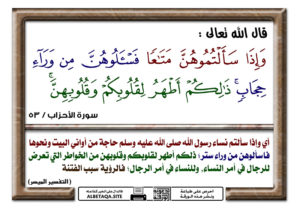 قال الله تعالى :
وَإِذَا سَأَلْتُمُوهُنَّ مَتَٰعًا فَسْـَٔلُوهُنَّ مِن وَرَآءِ
حِجَابٍۚ ذَٰلِكُمْ أَطْهَرُ لِقُلُوبِكُمْ وَقُلُوبِهِنَّۚ
سورة الأحزاب / ٥٣
أي وإذا سألتم نساء رسول الله صلى الله عليه وسلم حاجة من أواني البيت ونحوها
فاسألوهن من وراء ستر؛ ذلكم أطهر لقلوبكم وقلوبهن من الخواطر التي تعرض
للرجال في أمر النساء، وللنساء في أمر الرجال؛ فالرؤية سبب الفتنة
( التفسير الميسر )
البطاقة
ALBETAQA.SITE
احرص على طباعة
ونشر هذه الورقة